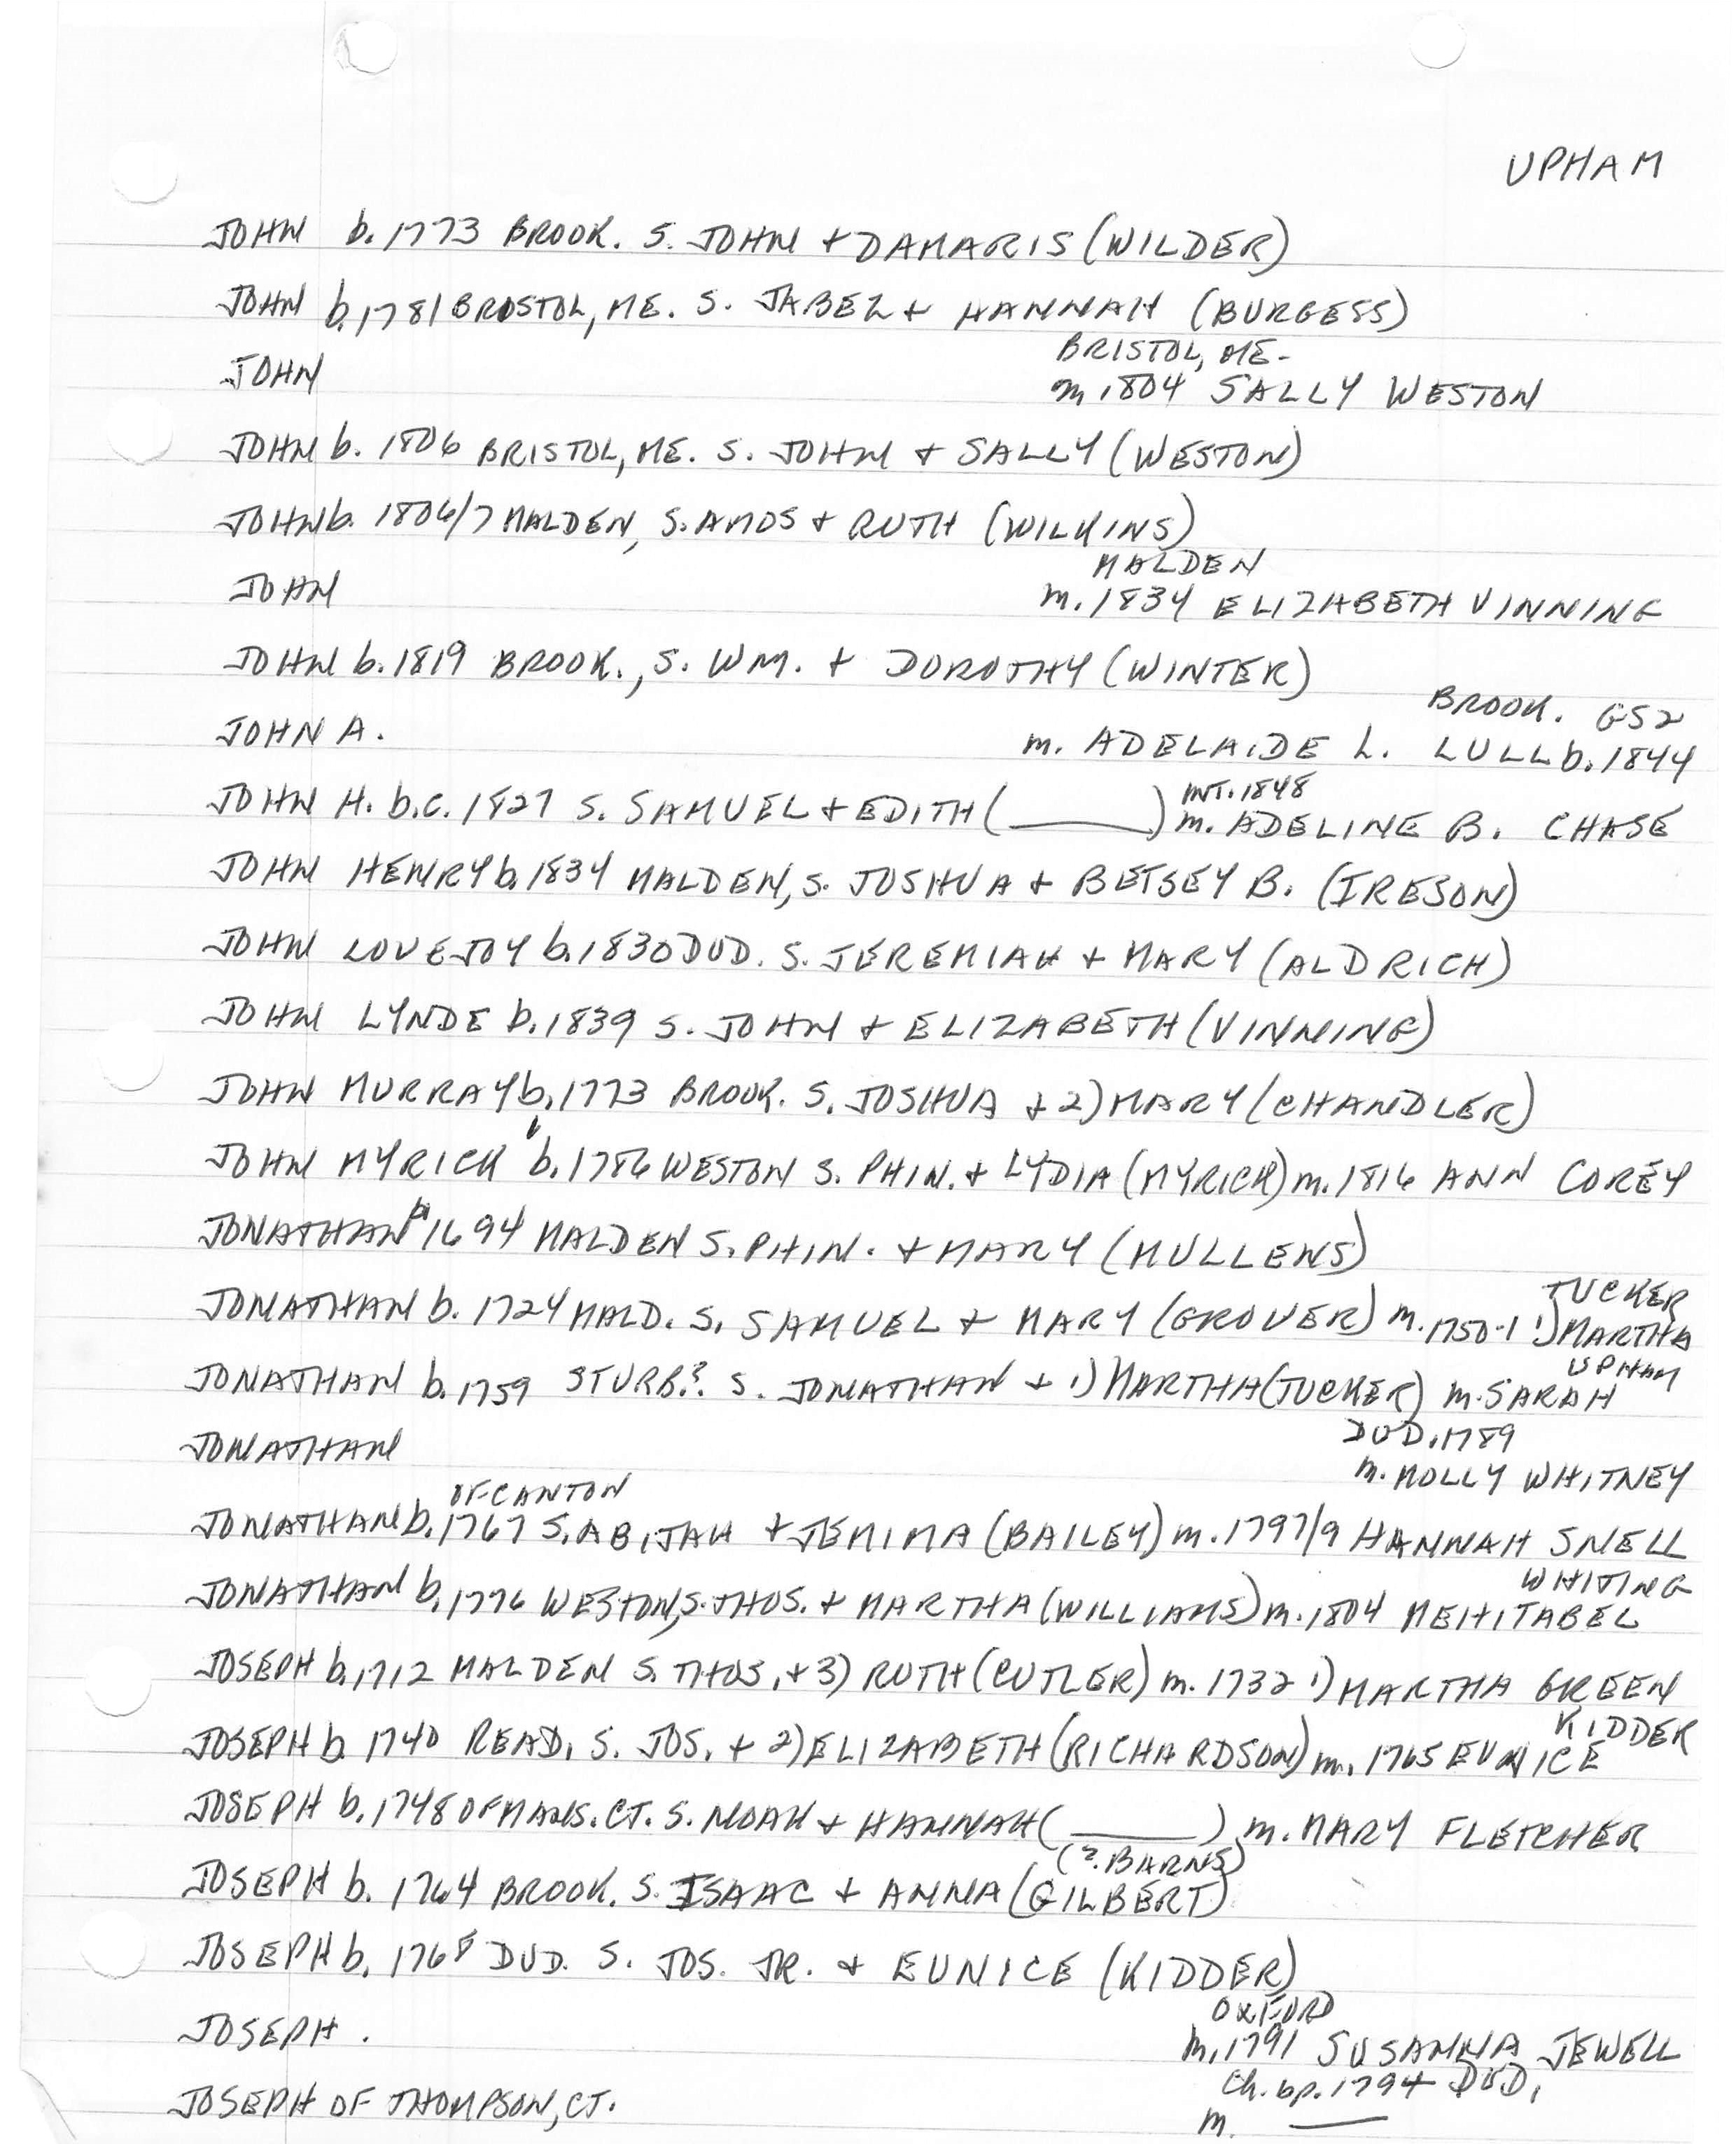 UPHAM
JOHN b. 1773 BROOK. S. JOHN + DAMARIS (WILDER)
JOHN b. 1781 BRISTOL, ME. S. JABEZ + HANNAH (BURGESS)
BRISTOL, ME.
JOHN m. 1804 SALLY WESTON
JOHN b. 1806 BRISTOL, ME. S. JOHN + SALLY (WESTON)
JOHN b. 1806/7 MALDEN, S. AMOS + RUTH (WILKINS)
MALDEN
JOHN m. 1834 ELIZABETH VINNING
JOHN b. 1819 BROOK., S. WM. + DOROTHY (WINTER)
BROOK. GS2
JOHN A. m. ADELAIDE L. LULL b. 1844
INT. 1848
JOHN H. b.c. 1827 S. SAMUEL + EDITH (____) m. ADELINE B. CHASE
JOHN HENRY b. 1834 MALDEN, S. JOSHUA + BETSEY B. (IRESON)
JOHN LOVEJOY b. 1830 DUD. S. JEREMIAH + MARY (ALDRICH)
JOHN LYNDE b. 1839 S. JOHN + ELIZABETH (VINNING)
JOHN MURRAY b. 1773 BROOK. S. JOSHUA + 2) MARY (CHANDLER)
JOHN MYRICK b. 1786 WESTON S. PHIN. + LYDIA (MYRICK) m. 1816 ANN COREY
JONATHAN 1694 MALDEN S. PHIN. + MARY (MULLENS)
TUCKER
JONATHAN b. 1724 MALD. S. SAMUEL + MARY (GROVER) m. 1750-1 1) MARTHA
UPHAM
JONATHAN b. 1759 STURB.? S. JONATHAN + 1) MARTHA (TUCKER) m. SARAH
DUD. 1789
JONATHAN m. MOLLY WHITNEY
OF CANTON
JONATHAN b. 1767 S. ABIJAH + JEMIMA (BAILEY) m. 1797/9 HANNAH SNELL
WHITING
JONATHAN b. 1776 WESTON, S. THOS. + MARTHA (WILLIAMS) m. 1804 MEHITABEL
JOSEPH b. 1712 MALDEN S. THOS. + 3) RUTH (CUTLER) m. 1732 1) MARTHA GREEN
KIDDER
JOSEPH b. 1740 READ. S. JOS. + 2) ELIZABETH (RICHARDSON) m. 1765 EUNICE
JOSEPH b. 1748 OF MANS. CT. S. NOAH + HANNAH (____) m. MARY FLETCHER
(?. BARNS)
JOSEPH b. 1764 BROOK. S. ISAAC + ANNA (GILBERT)
JOSEPH b. 1768 DUD. S. JOS. JR. + EUNICE (KIDDER)
OXFORD
JOSEPH. m. 1791 SUSANNA JEWELL
Ch. bp. 1794 DUD.
JOSEPH OF THOMPSON, CT. m. ____